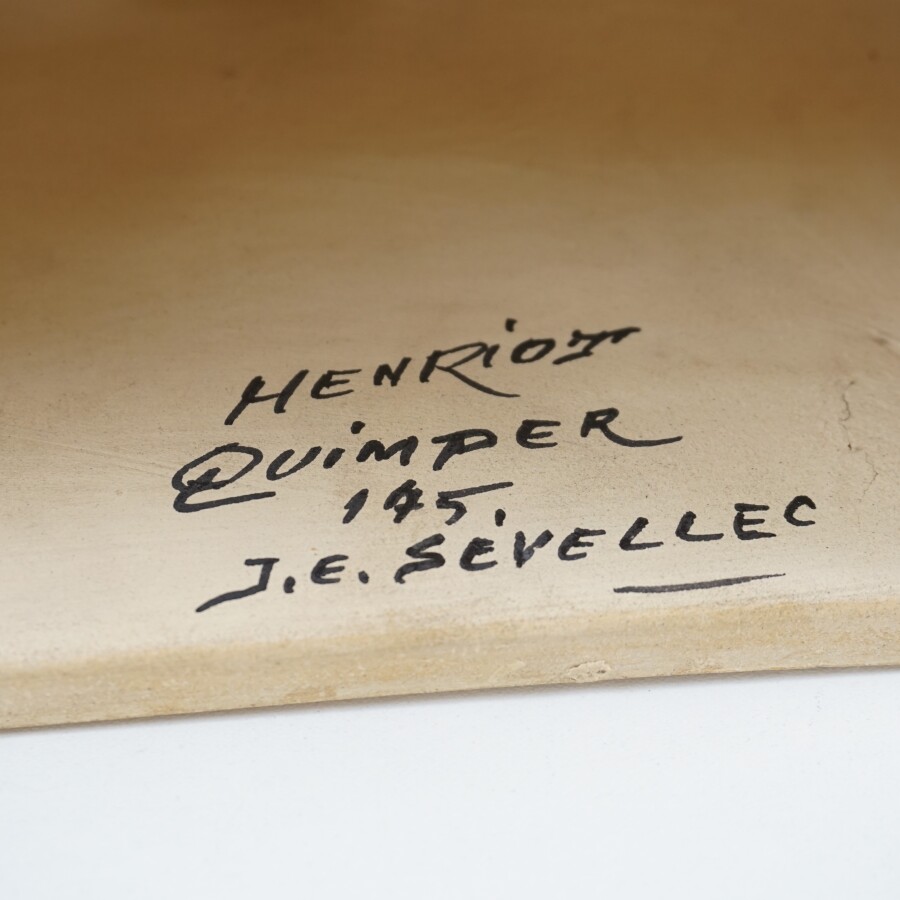 HENRiOT
QUiMPER
145.
J.E. SÉVELLEC